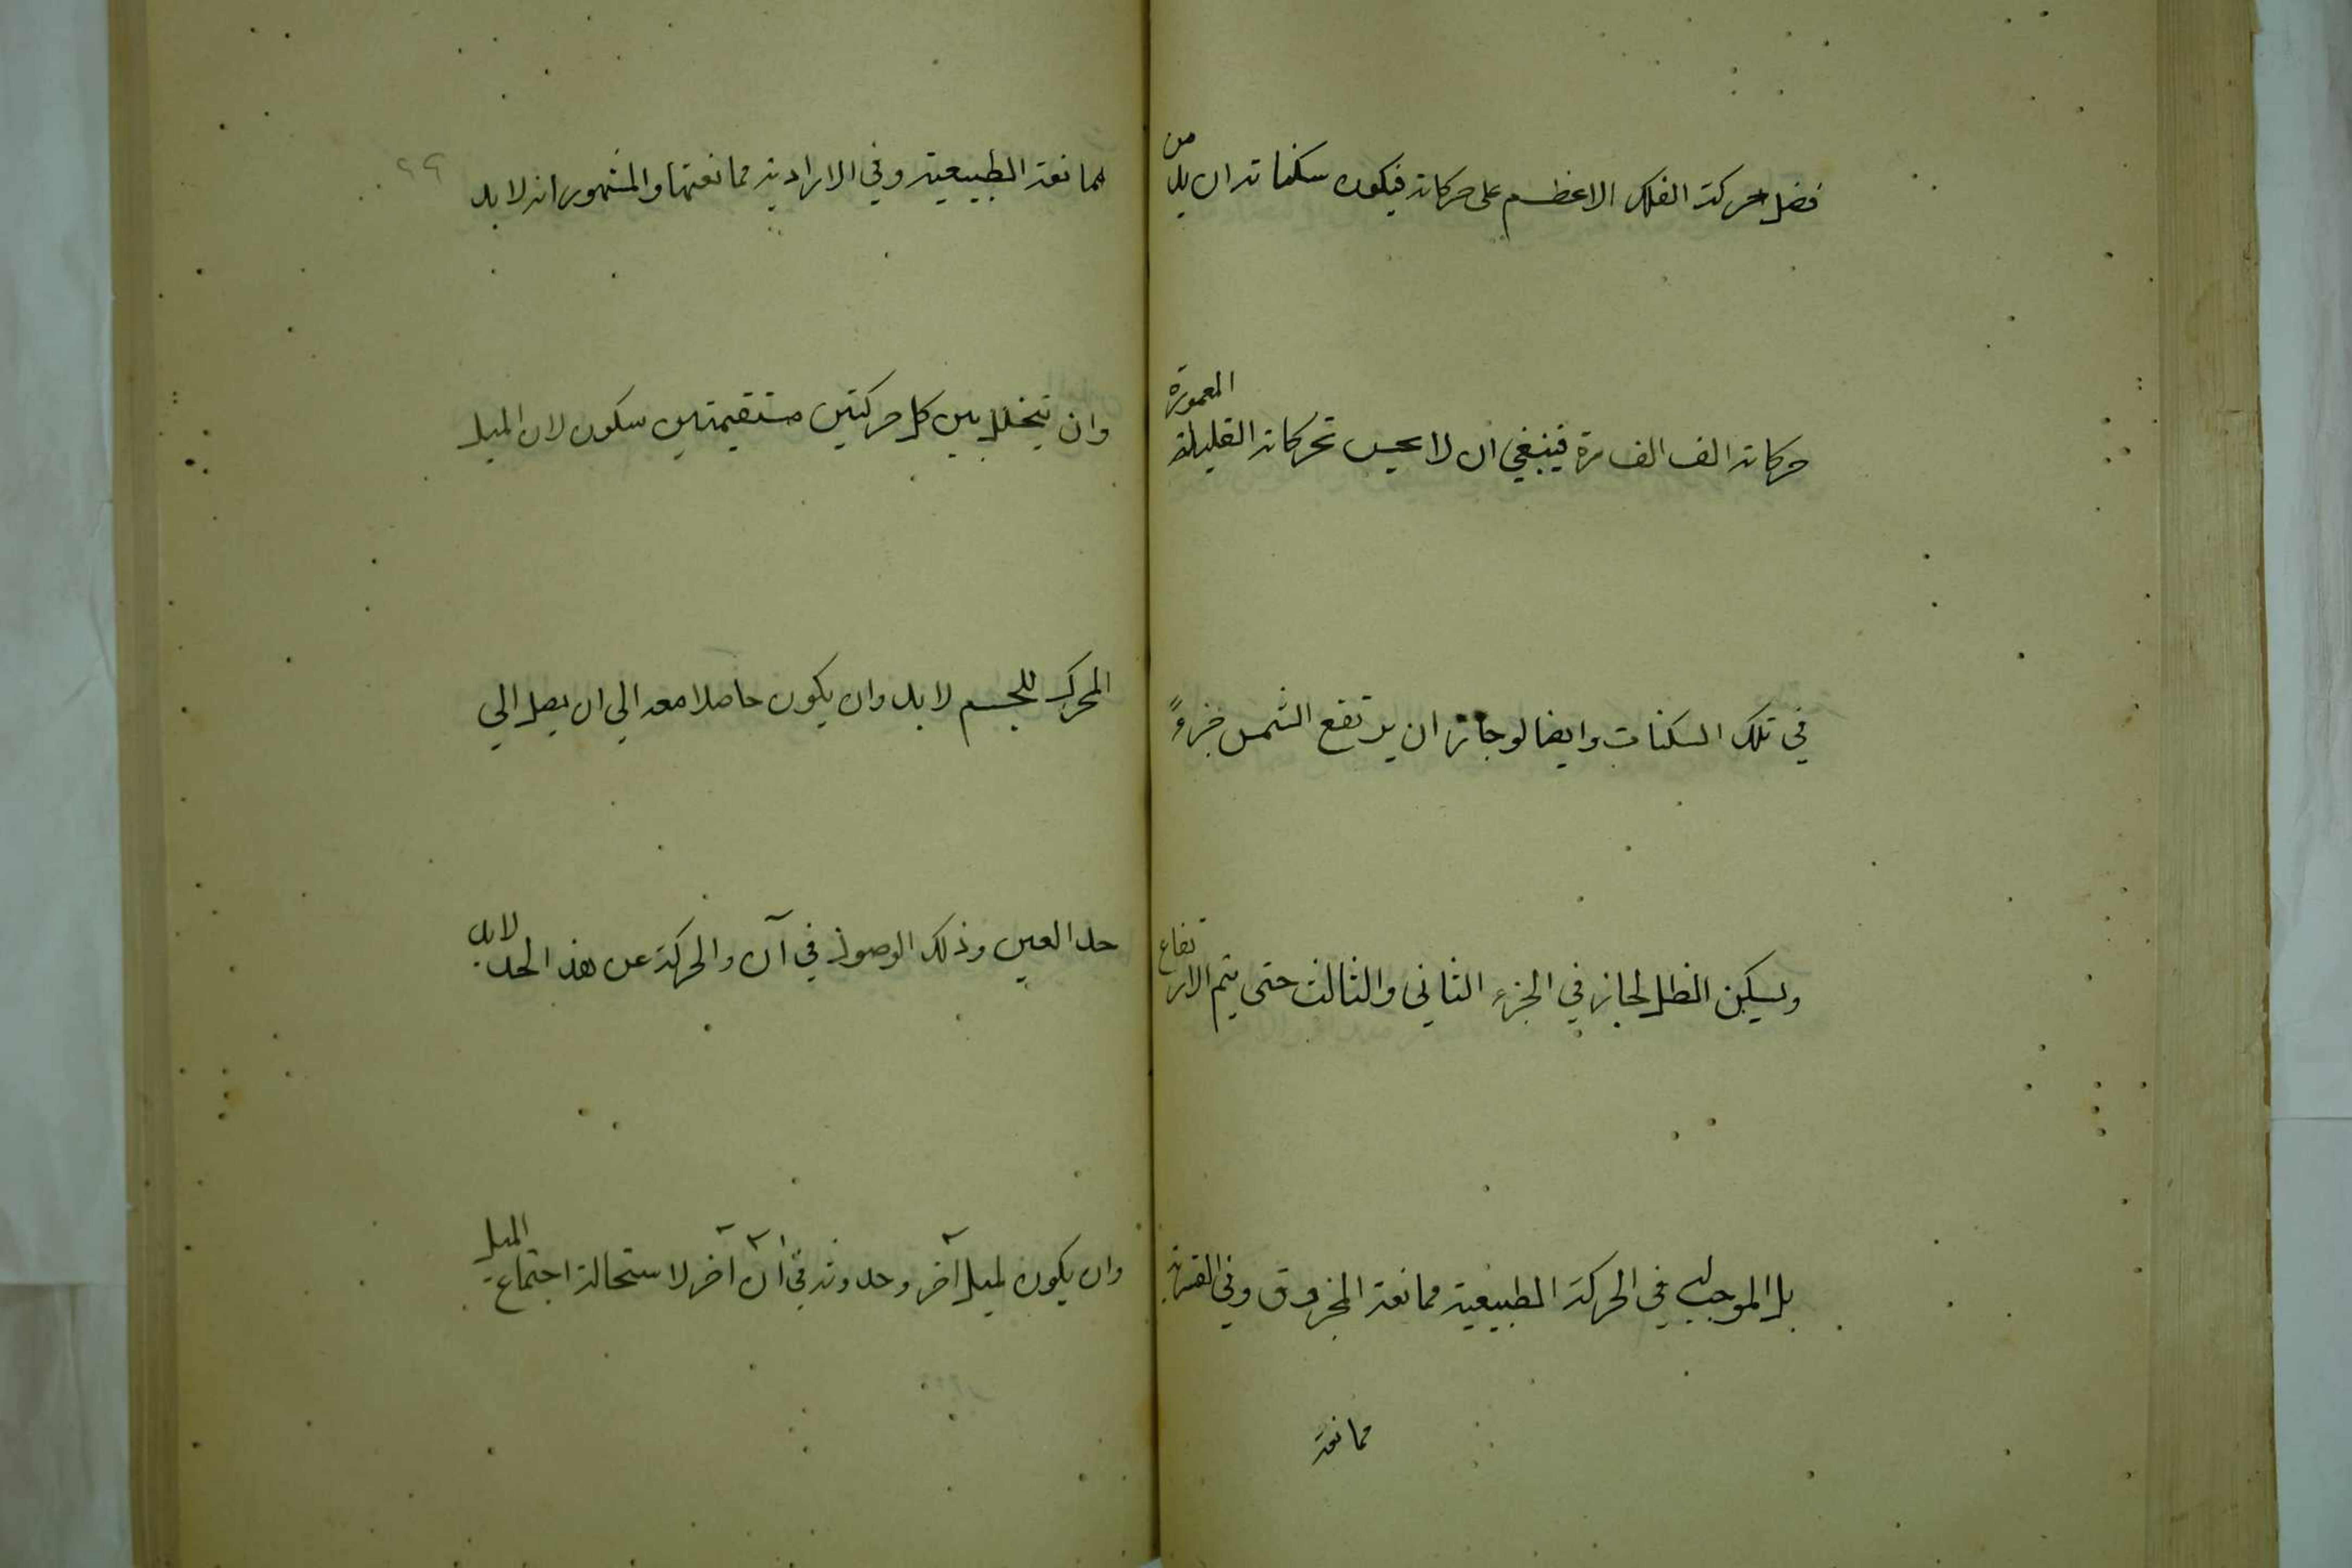 فضل حركة الفلك الاعظم على حركاته فيكون سكناته ازيد من
حركاته الف الف مرة فينبغي ان لا يحس بحركاته القليلة المعمورة
في تلك السكنات وايضا لو جاز ان يرتفع الشمس جزءً
ويسكن الظل لجاز في الجزء الثاني والثالث حتى يتم الارتفاع
بل الموجب في الحركة الطبيعية ممانعة المخروق وفي القسرية
ممانعة
ممانعة الطبيعية وفي الارادية ممانعتها والمشهور انه لا بد
وان يتخلل بين كل حركتين مستقيمتين سكون لان الميل
المحرك للجسم لا بد وان يكون حاصلا معه الي ان يصل الي
حد المعين وذلك الوصول في آن والحركة عن هذا الحد لابد
وان يكون لميل آخر وحدوثه في آن آخر لاستحالة اجتماع الميل